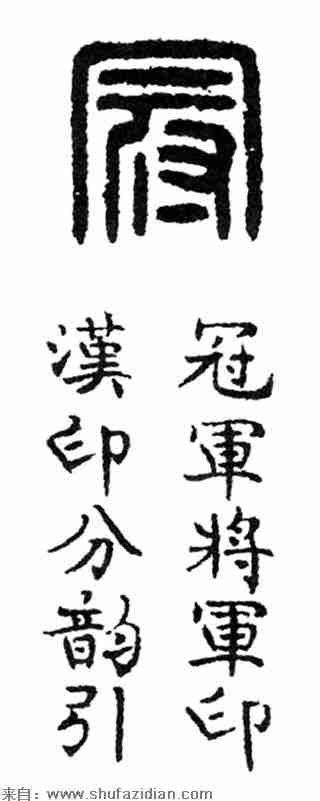 冠
冠軍將軍印
漢印分韵引
来自：www.shufazidian.com